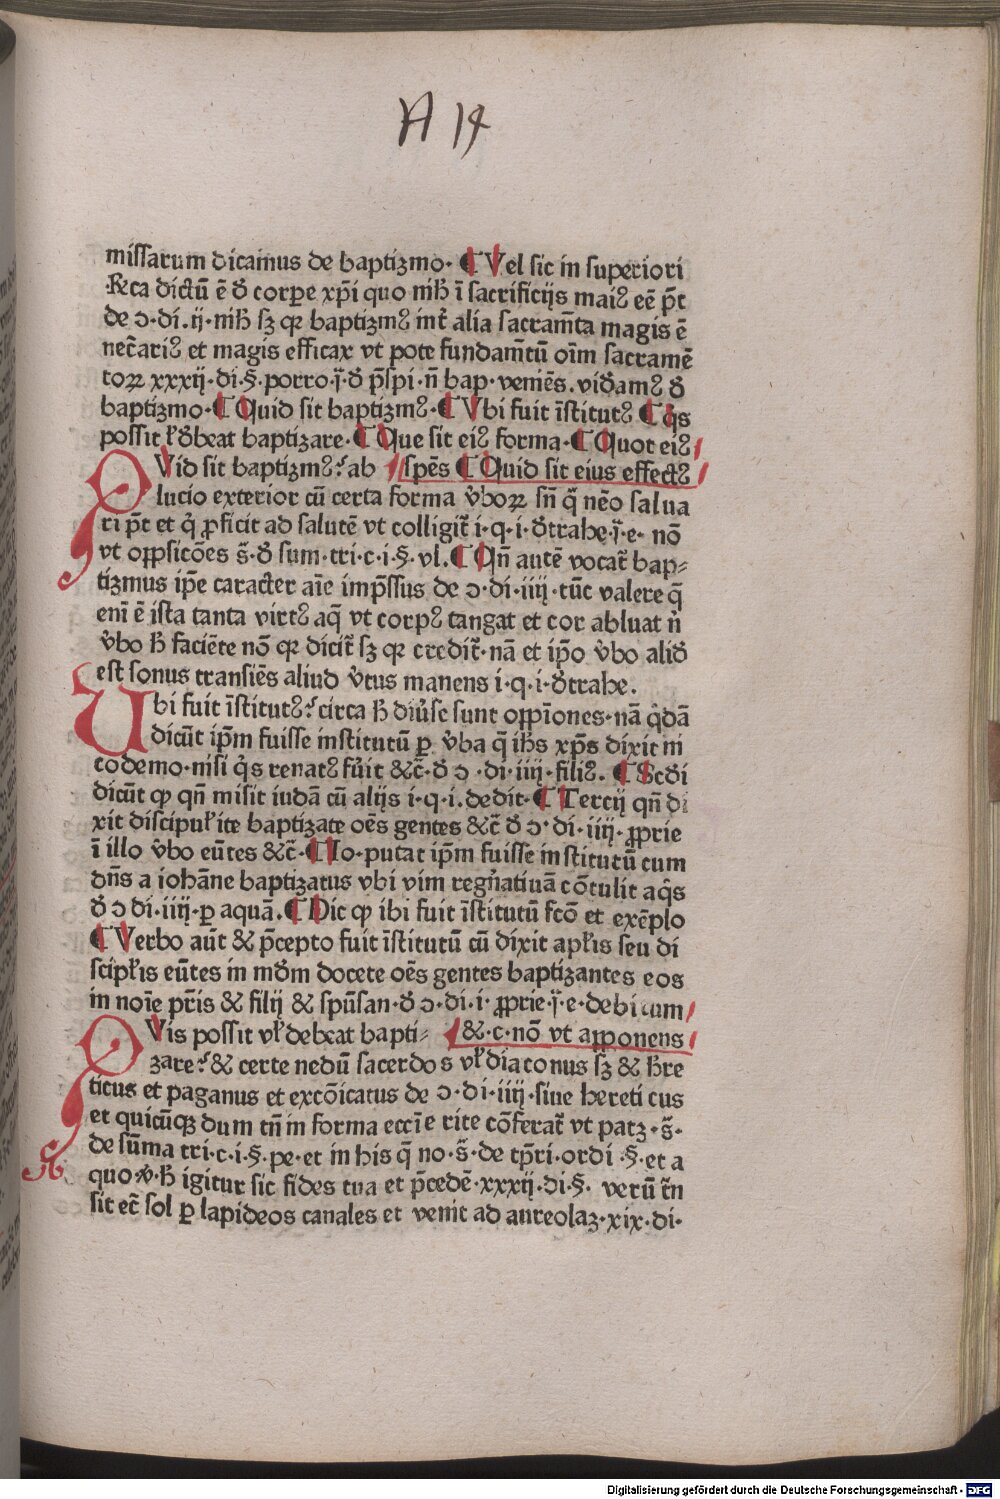 A 14
missarum dicamus de baptizmo· ¶ Vel sic in superiori
Reca dictū ē đ corꝑe xp̄i quo nih̄ ī sacrificijs maiꝰ eē p̄t
de ɔ·di.ij·nih̄ sꝫ ꝙ baptizmꝰ int̄ alia sacram̄ta magis ē
nec̄ariꝰ et magis efficax vt pote fundam̄tū oīm sacramē
toꝝ xxxij·di·§·porro·j̄·đ p̄sp̄i·n̄ bap·veniēs.viđamꝰ đ
baptizmo·¶ Quid sit baptizmꝰ·¶ Vbi fuit īstitutꝰ ¶ q̇s
possit ł đbeat baptizare·¶ Que sit eiꝰ forma·¶ Quot eiꝰ
QVid sit baptizmꝰ? ab spēs ¶ Quid sit eius effectꝰ
lucio exterior cū certa forma v̇boꝝ sn̄ q̄ nēo salua
ri p̄t et q̇ ꝓficit ad salutē vt colligit̄ i·q·i·đtrahe·j̄·e· nō
vt oꝓpsicōes s̄·đ sum·tri·c·i·§·vl.¶ Qn̄ autē vocat̄ bap⸗
tizmus ip̄e caracter aīe imp̄ssus de ɔ·di·iiij·tūc valere q̄
enī ē ista tanta virtꝰ aq̄ vt corpꝰ tangat et cor abluat n̄
v̇bo h̄ faciēte nō ꝙ dicit̄ sꝫ ꝙ credit̄·nā et ip̄o v̇bo aliđ
est sonus transiēs aliud v̇tus manens i·q·i·đtrahe.
Ubi fuit īstitutꝰ? circa h̄ diu̇se sunt oꝓpīones·nā q̇dā
dicūt ip̄m fuisse institutū ꝑ v̇ba q̄ ih̄s xp̄s dixit ni
codemo·nisi q̇s renatꝰ fu̇it &c̄·đ ɔ ·di·iiij·filiꝰ. ¶ Scđi
dicūt ꝙ qn̄ misit iudā cū alijs i·q·i.dedit·¶ Tercij qn̄ di
xit discipuł ite baptizate oēs gentes &c̄ đ ɔ·di·iiij·ꝓprie
ī illo v̇bo eūtes &c̄·¶ Io·putat ip̄m fuisse institutū cum
dn̄s a iohāne baptizatus vbi vim regn̄atiuā cōtulit aq̇s
đ ɔ di·iiij·ꝑ aquā.¶ Dic ꝙ ibi fuit īstitutū fcō et exēplo
¶ Verbo aūt & p̄cepto fuit īstitutū cū dixit apłis seu di
scipłis eūtes in mđm docete oēs gentes baptizantes eos
in noīe pr̄is & filij & spūsan·đ ɔ·di·i·ꝓprie·j̄·e·debitum
QVis possit vł debeat bapti⸗ &·c·nō vt aꝓponens
zare? & certe nedū sacerdos vł diaconus sꝫ & h̄re
ticus et paganus et excōicatus de ɔ·di·iiij·siue hereticus
et quicūqꝫ dum tn̄ in forma eccīe rite cōferat̄ vt patꝫ·s̄·
de sūma tri·c·i·§·pe·et in his q̄ no·s̄·de tp̄ri·ordi·§·et a
quo·v̇·h̄ igitur sic fides tua et p̄cedē·xxxij·di·§· verū t̄n
sit ec̄ sol ꝑ lapideos canales et venit ad aureolaꝫ·xix·di·
Digitalisierung gefördert durch die Deutsche Forschungsgemeinschaft - DFG